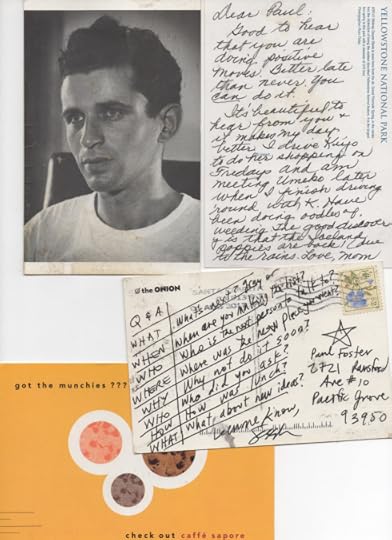 YELLOWSTONE NATIONAL PARK
Dear Paul:
Good to hear
that you are
doing positive
moves. Better late
than never. You
can do it.
It's beautiful to
hear from you &
it makes my day
better. I drive
to do her shopping on
Fridays and am
meeting later
when I finish driving
'round with K. Have
been doing oodles of
weeding. The good discovery
is that the Iceland
poppies are back! (due
to the rains. Love, Mom
the ONION
SANTA
Q & A.
WHAT What's new?
WHEN When are you making the list?
WHO Who is the next person to it to?
WHERE Where was the new place
WHY Why not do it soon?
WHO Who did you ask?
HOW How was lunch?
WHAT What about new ideas?
know,
Paul Foster
2721 Ransford
Ave #10
Pacific Grove
93950
got the munchies ???
check out caffè sapore